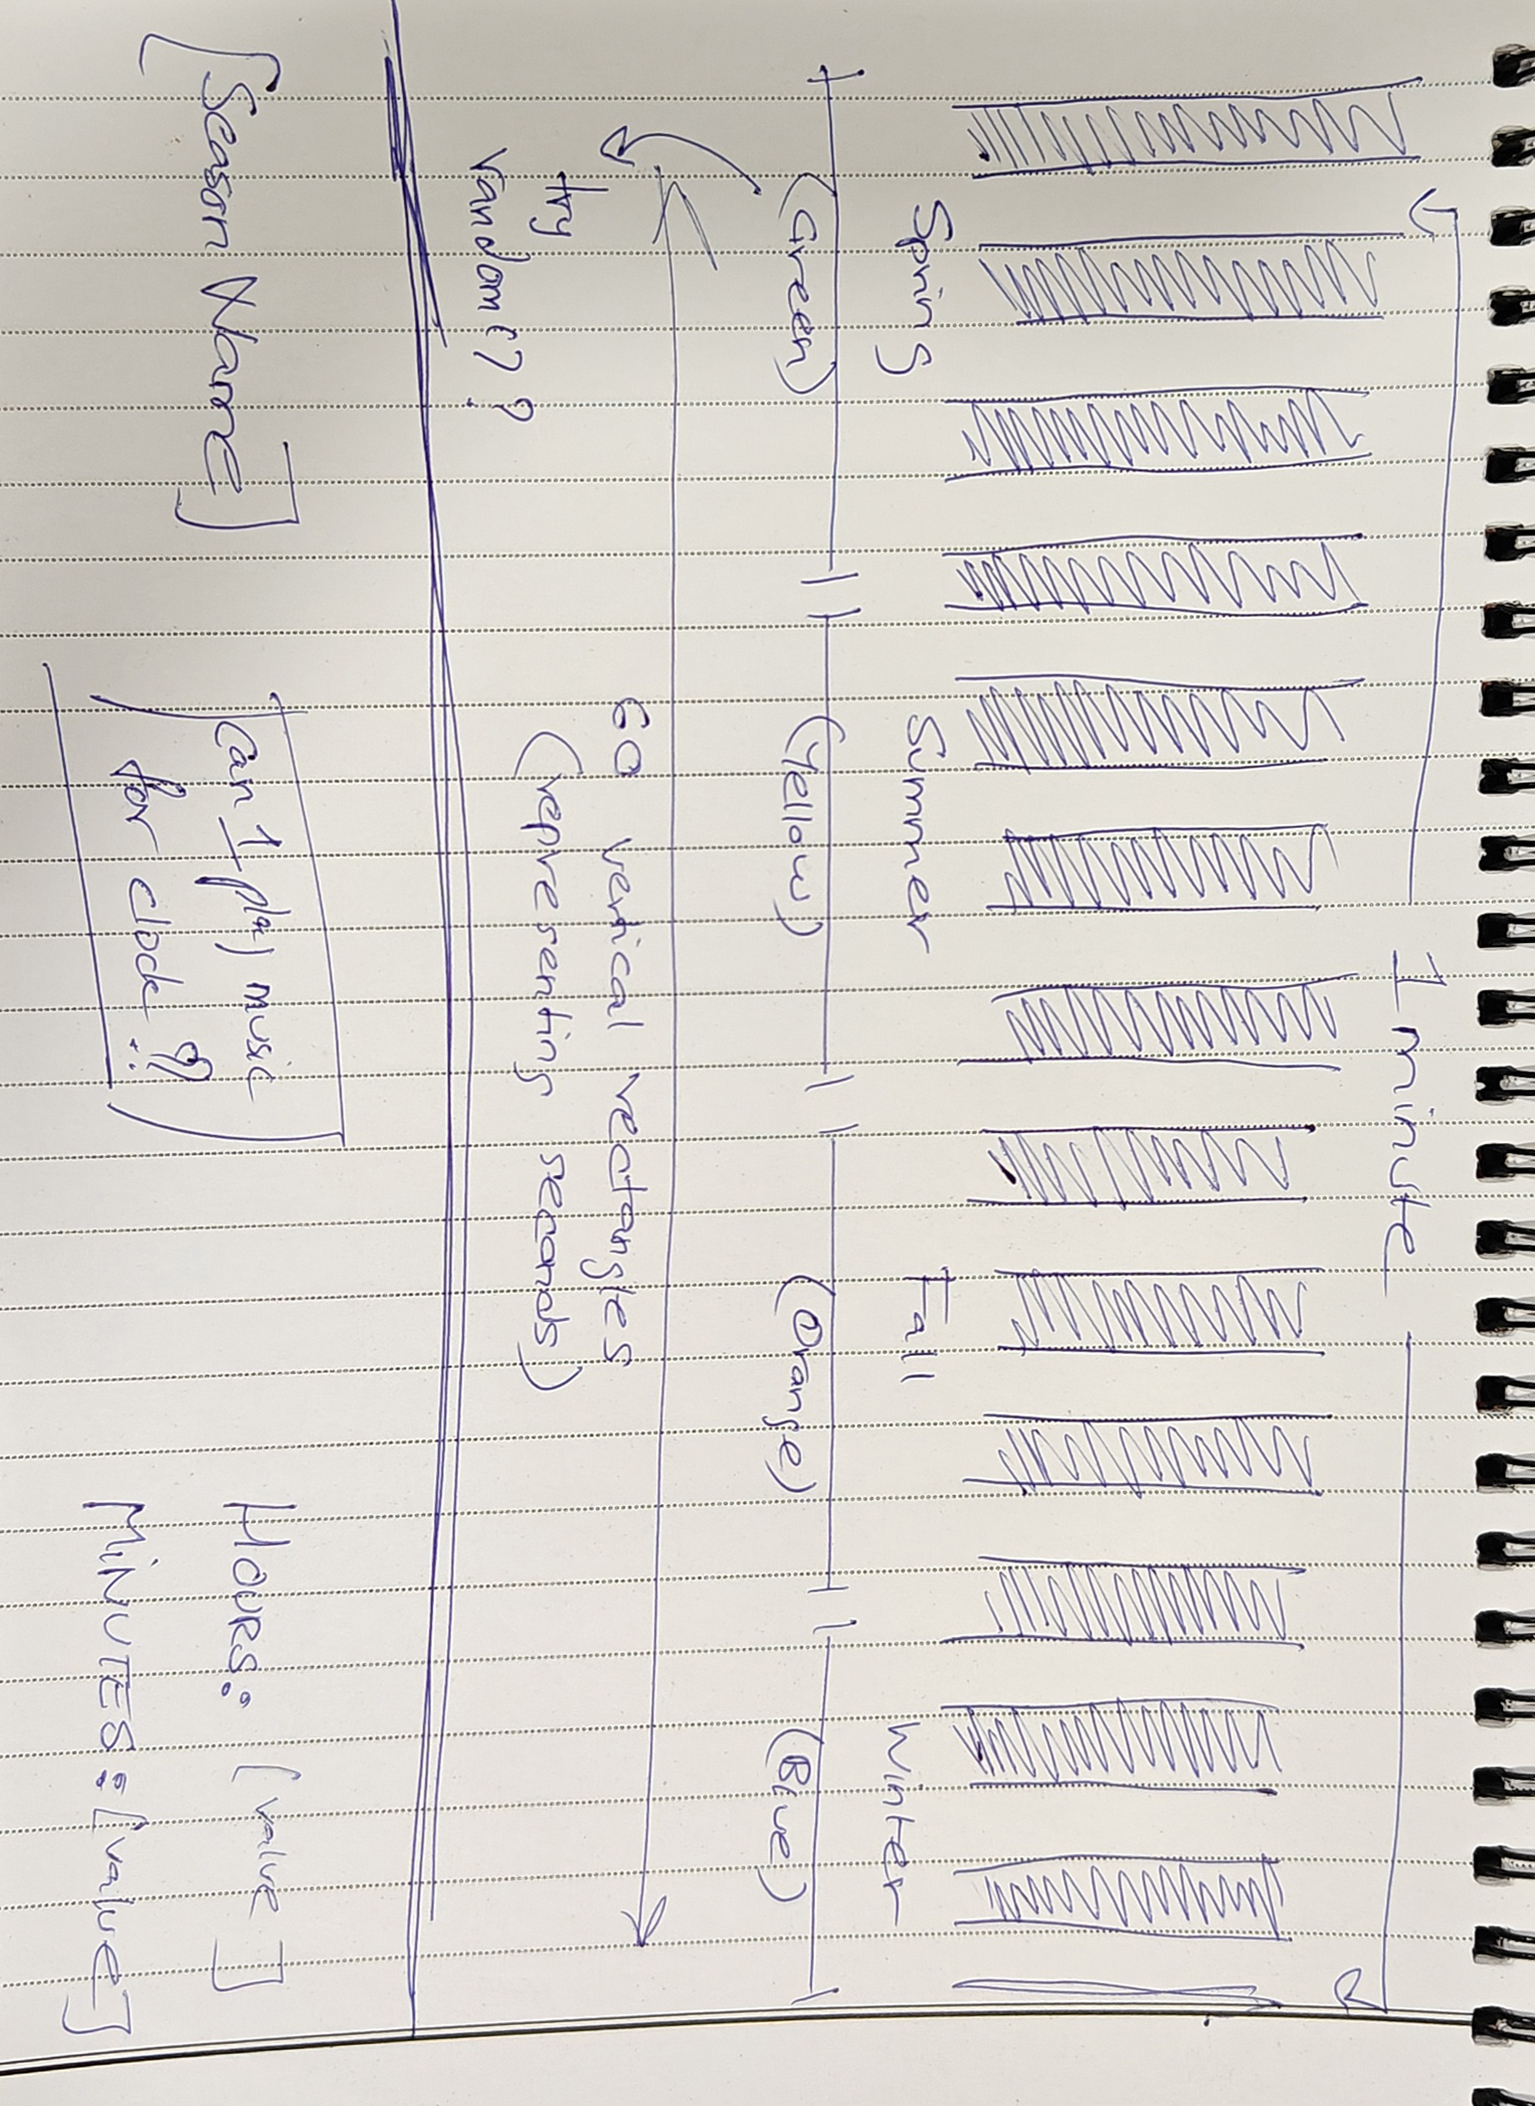 1 minute
Spring Summer Fall Winter
(Green) (Yellow) (Orange) (Blue)
60 vertical rectangles
(representing seconds)
try
random()?
[Season Name]
can I play music
for clock ??
HOURS: [value]
MINUTES: [value]